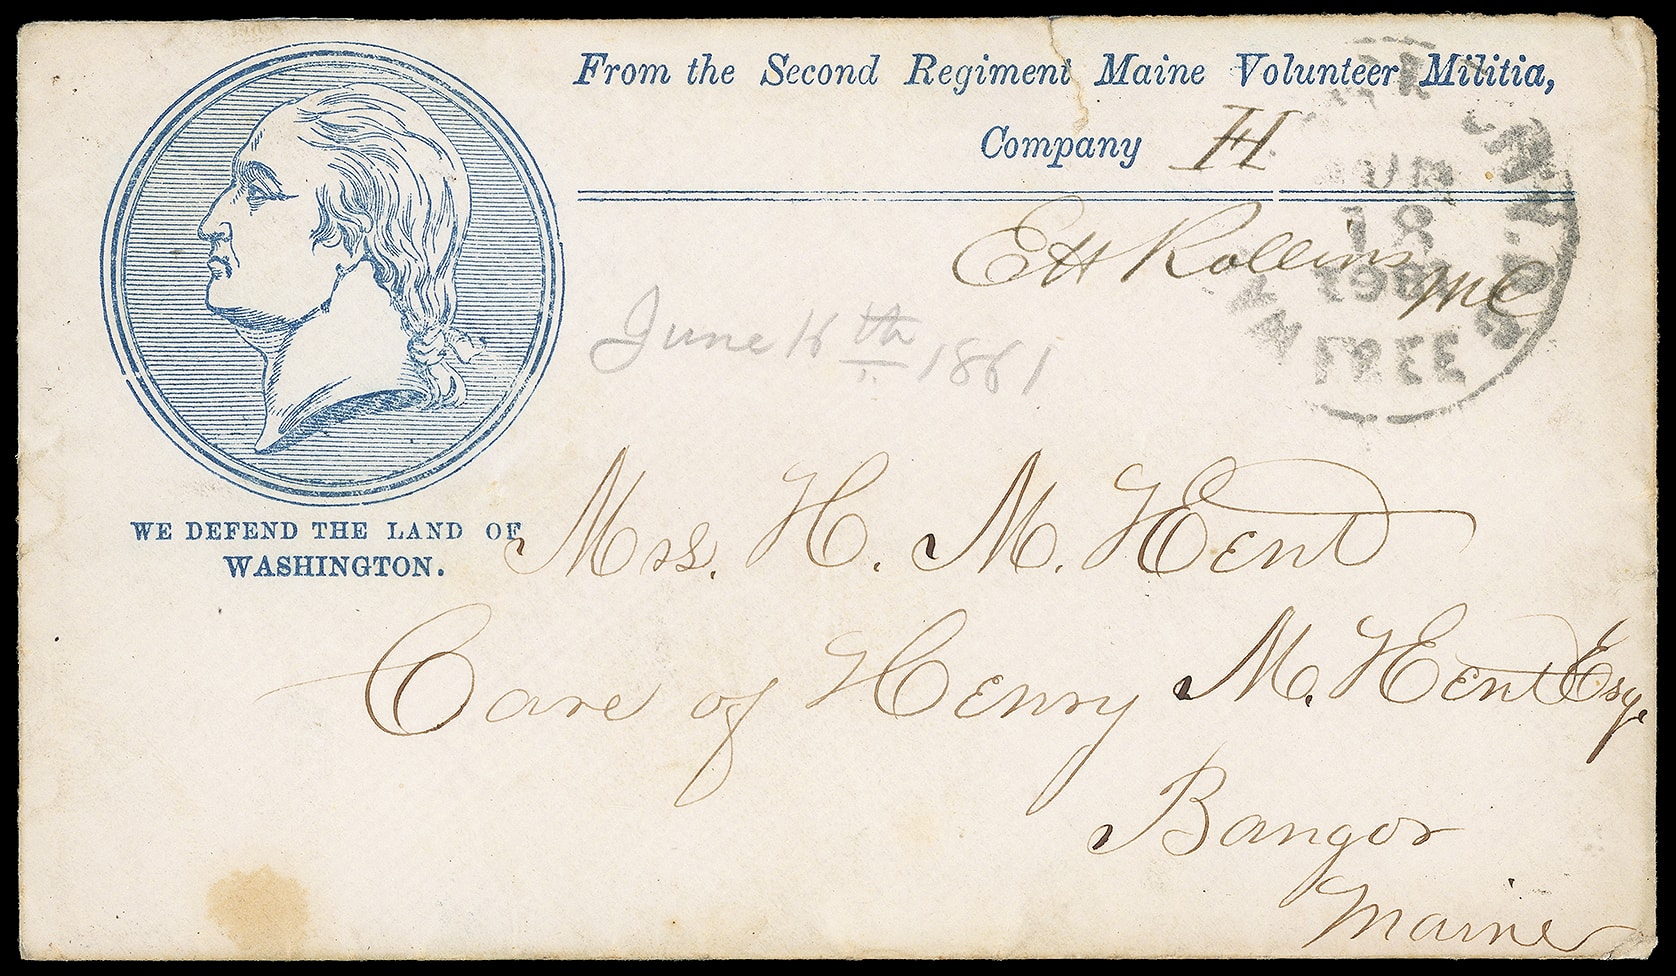 From the Second Regiment Maine Volunteer Militia,
Company H
E H Rollins MC
18
1861
FREE
June 16th 1861
WE DEFEND THE LAND OF
WASHINGTON.
Mrs. H. M. Hent
Care of Henry M. Hent Esq.
Bangor
Maine